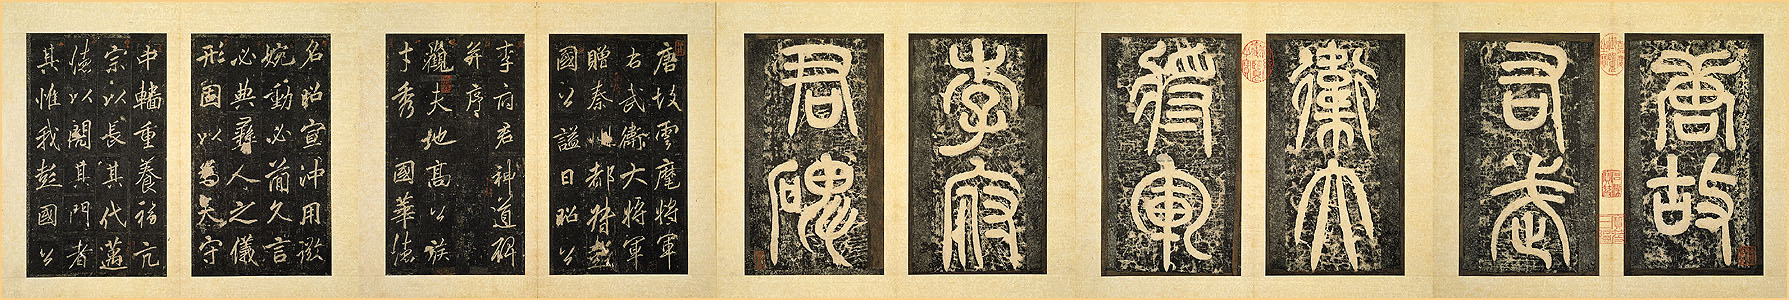 唐故
右武
衛大
將軍
李府
君碑
唐故雲麾將軍
右武衛大將軍
贈秦州都督彭
國公謚曰昭公
李府君神道碑
并序
觀夫地高公族
才秀國華德
名昭宣沖用微
婉動必簡久言
必典彝人之儀
形國以為天守
中轓重養福亢
宗以長其代邁
德以其門者
其惟我彭國公